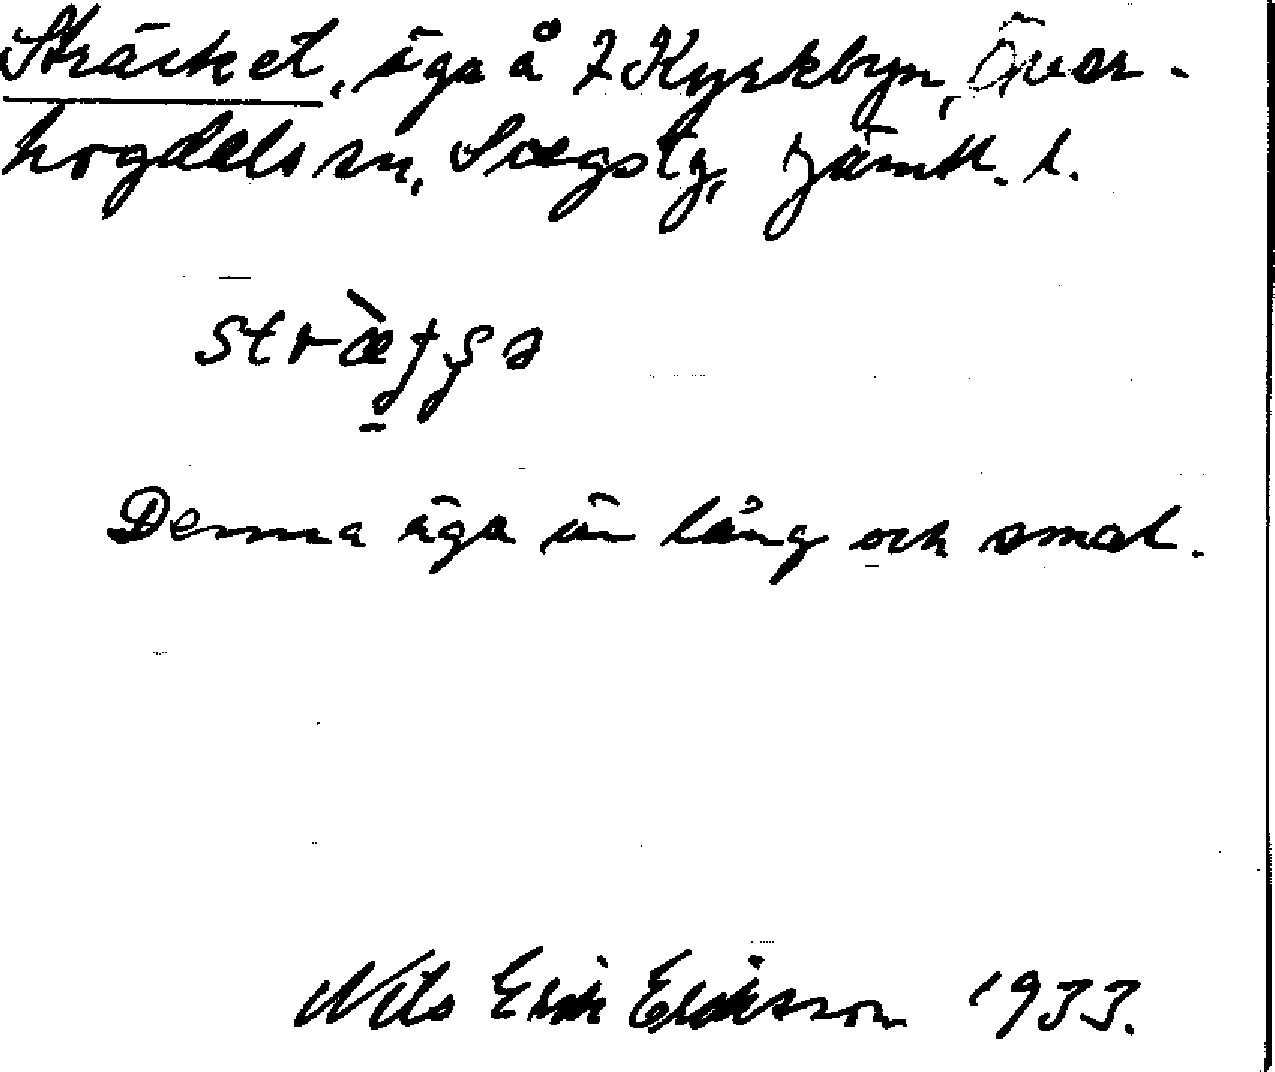 Sträcket, äga å 7 Kyrkbyn, Över-
hogdals sn, Svegs tg, Jämtl. l.
Denna äga är lång och smal.
Nils Erik Eriksson 1933.